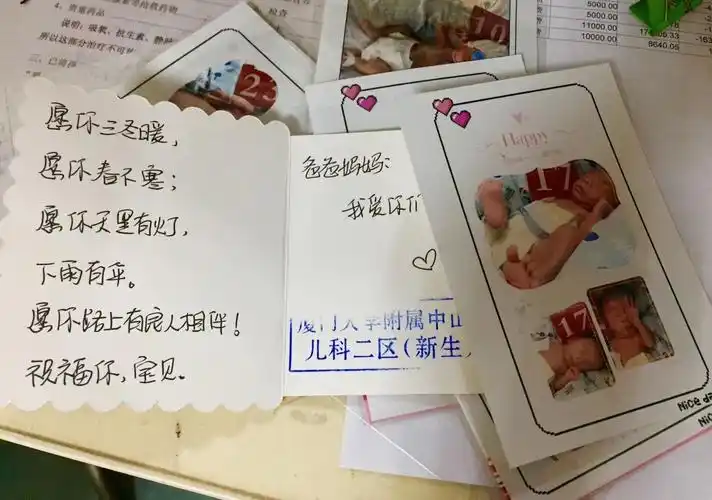 4、贵重药品
说明：吸氧、抗生素、静脉
所以这部分治疗不可
检查
5000.00
5000.00
11000.00
10000.00
6640.05
10
23
愿你三冬暖，
愿你春不寒；
愿你天黑有灯，
下雨有伞。
愿你路上有良人相伴！
祝福你，宝贝。
爸爸妈妈：
我爱你们
厦门大学附属中山
儿科二区(新生
Happy
17
17
Nice da
Nic